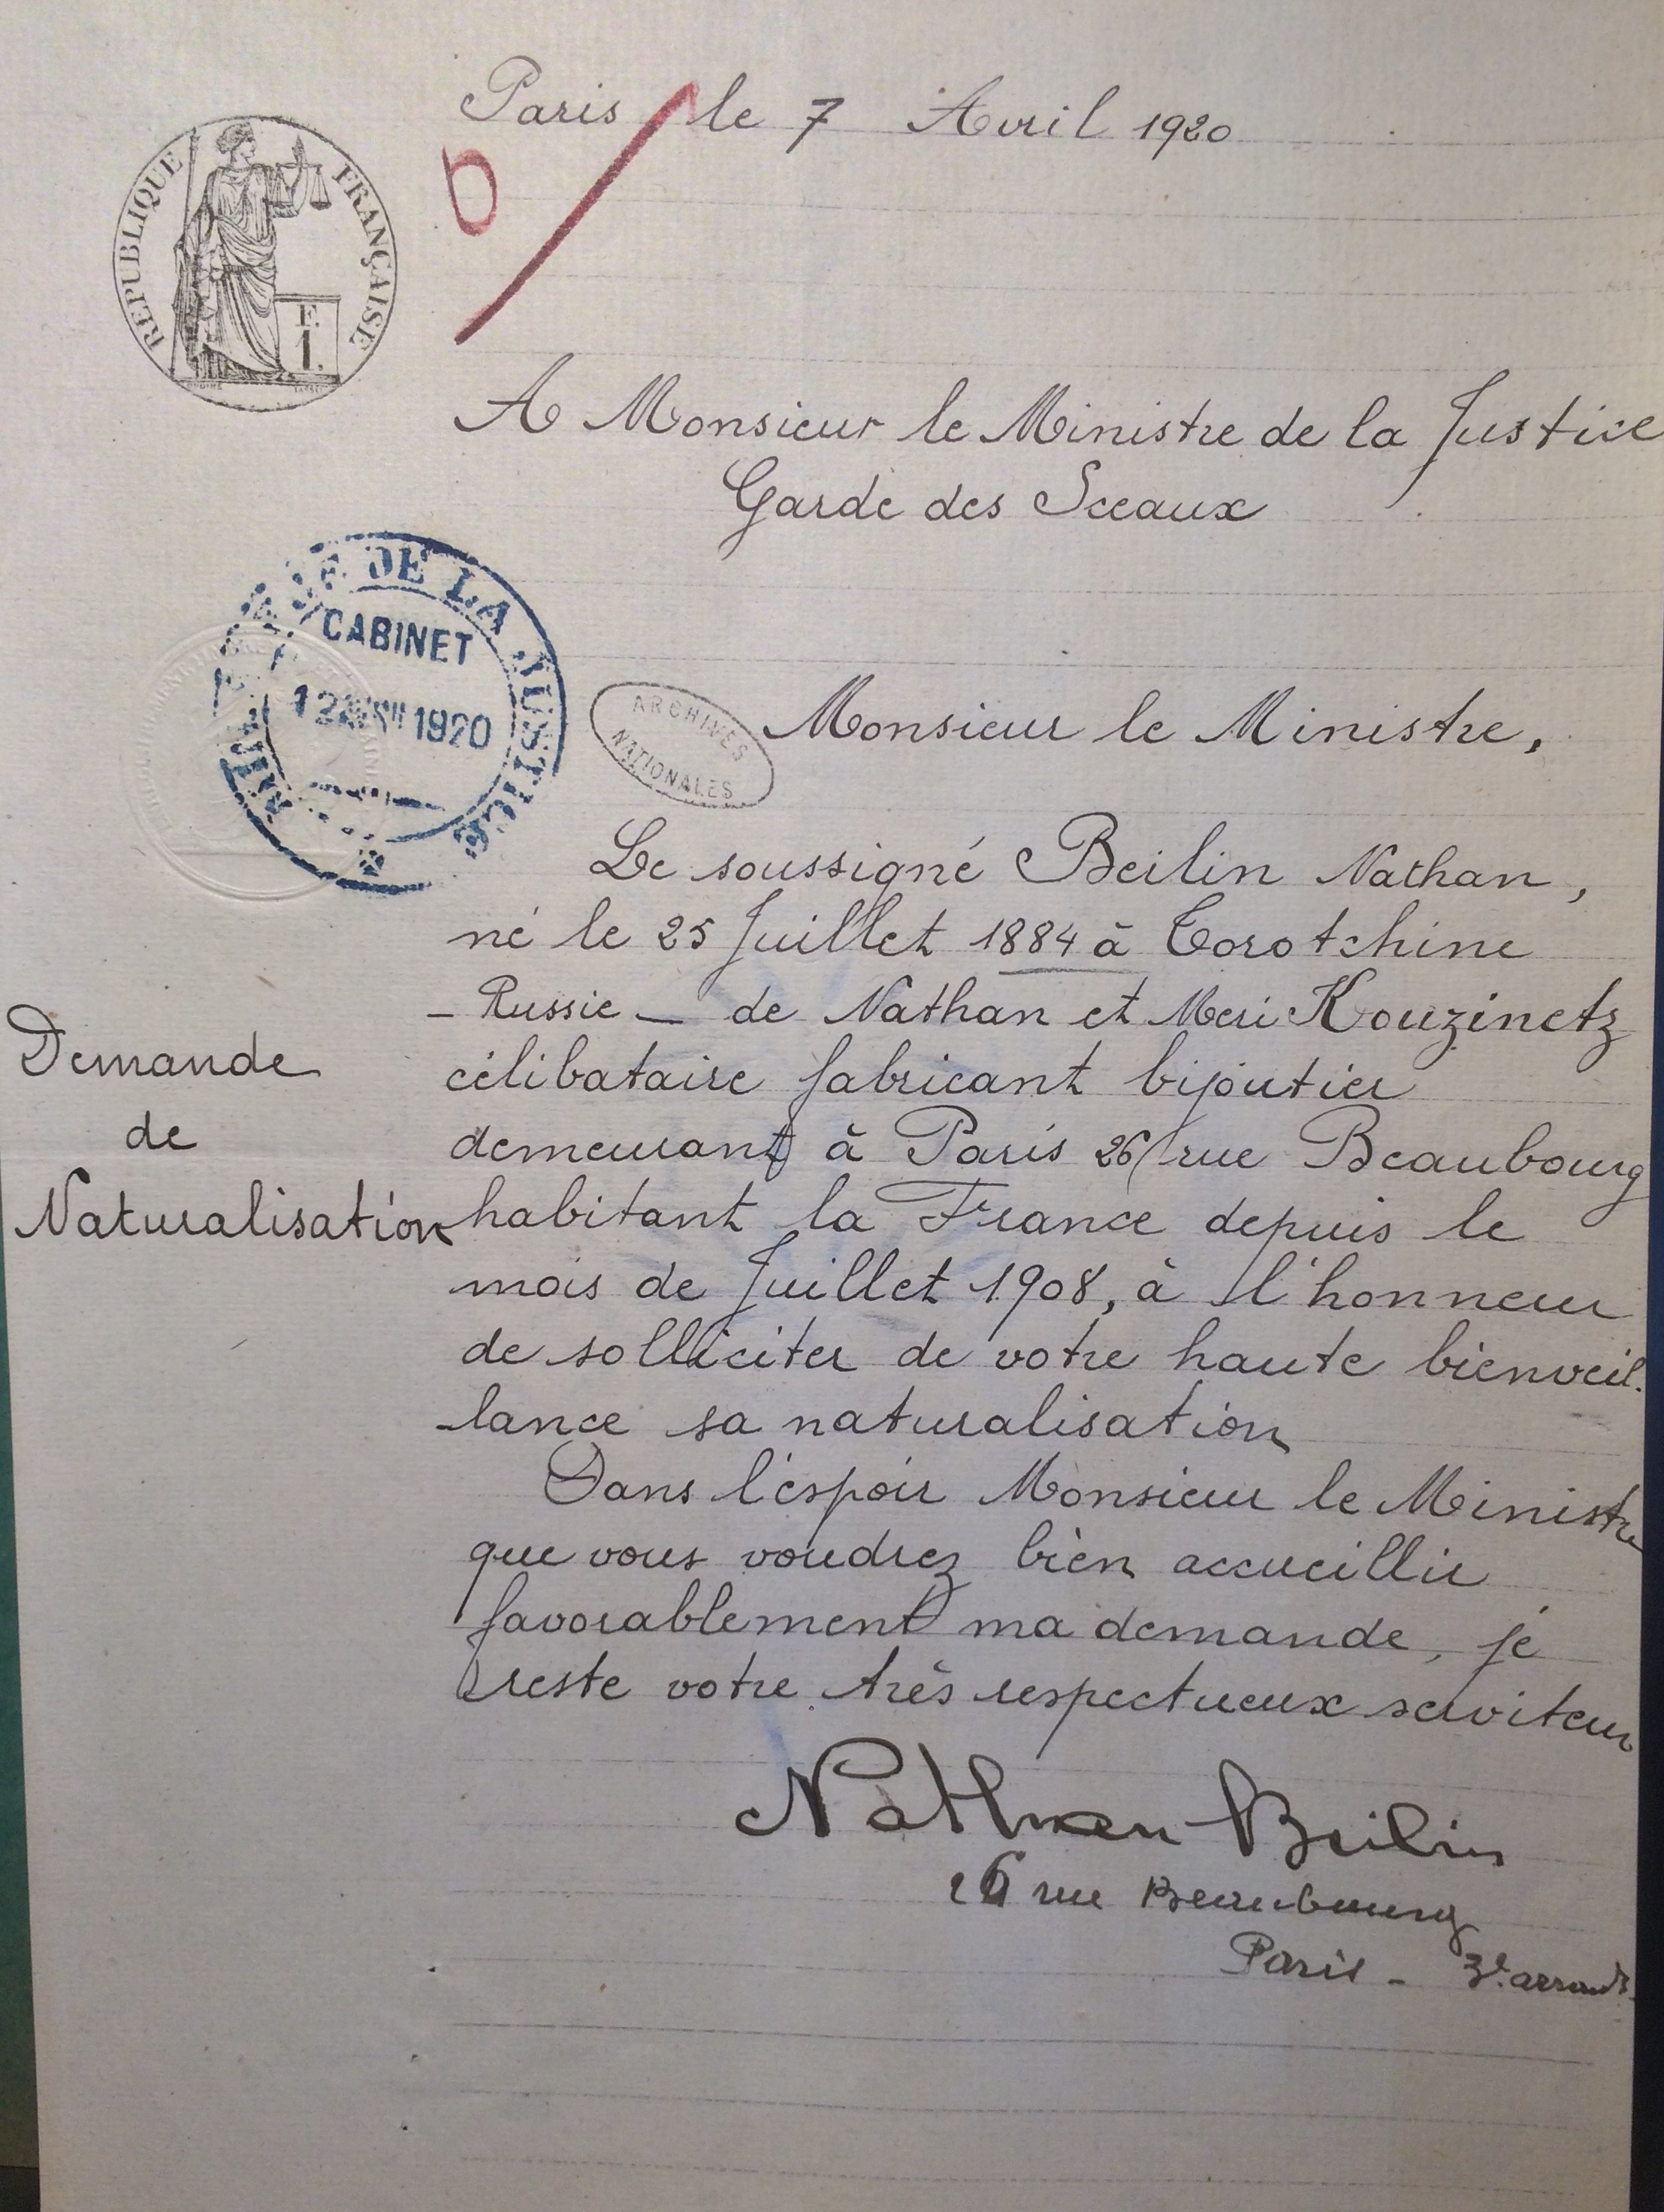 Paris le 7 Avril 1920
RÉPUBLIQUE FRANÇAISE
F.
1.
A Monsieur le Ministre de la Justice
Garde des Sceaux
DE LA JUSTICE
CABINET
1920
ARCHIVES
NATIONALES
Monsieur le Ministre,
Le soussigné Beilin Nathan,
né le 25 Juillet 1884 à Corotchine
- Russie - de Nathan et Meri Kouzinetz
célibataire fabricant bijoutier
demeurant à Paris 26 rue Beaubourg
habitant la France depuis le
mois de Juillet 1908, à l'honneur
de solliciter de votre haute bienveil-
lance sa naturalisation
Demande
de
Naturalisation
Dans l'espoir Monsieur le Ministre
que vous voudrez bien accueillir
favorablement ma demande, je
reste votre très respectueux serviteur
Nathan Beilin
26 rue Beaubourg
Paris - 3e. arrondt.